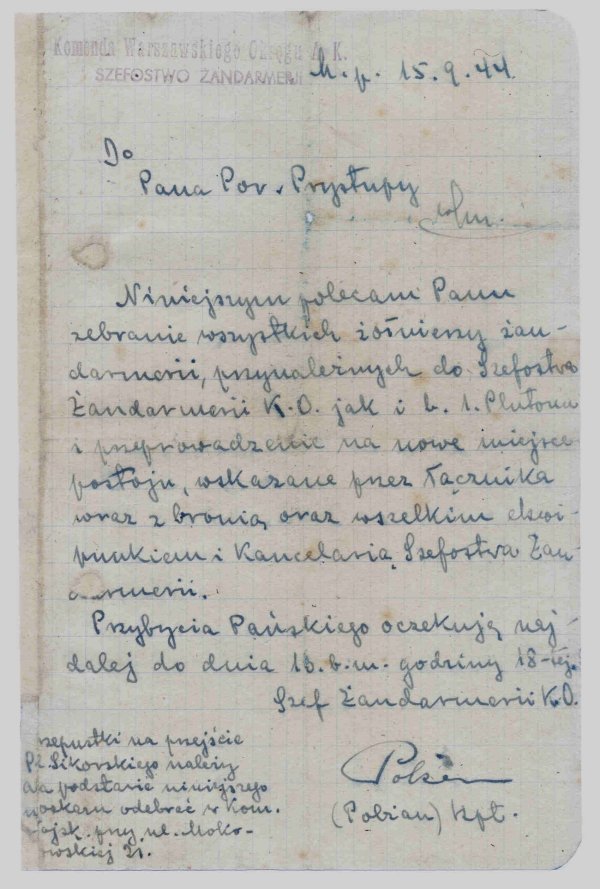 Komenda Warszawskiego Okręgu A. K.
SZEFOSTWO ŻANDARMERJI
M. p. 15. 9. 44
Do
Pana Por. Przystupy
Niniejszym polecam Panu
zebranie wszystkich żołnierzy żan-
darmerii, przynależnych do Szefostwa
Żandarmerii K.O. jak i b. 1. Plutonu
i przeprowadzenie na nowe miejsce
postoju, wskazane przez łącznika
wraz z bronią oraz wszelkim ekwi-
punkiem i Kancelarią Szefostwa Żan-
darmerii.
Przybycia Pańskiego oczekuję naj-
dalej do dnia 16. b.m. godziny 18-tej.
Szef Żandarmerii K.O.
zepustki na przejście
Pl. Sikorskiego należy
na podstawie niniejszego
odebrać w Kom.
pay ul. Moko-
owskiej 21.
(Pobian) Kpt.